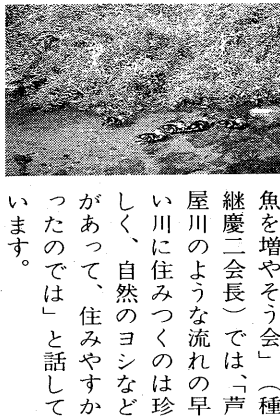 魚を増やそう会」（種
継慶二会長）では、「芦
屋川のような流れの早
い川に住みつくのは珍
しく、自然のヨシなど
があって、住みやすか
ったのでは」と話して
います。